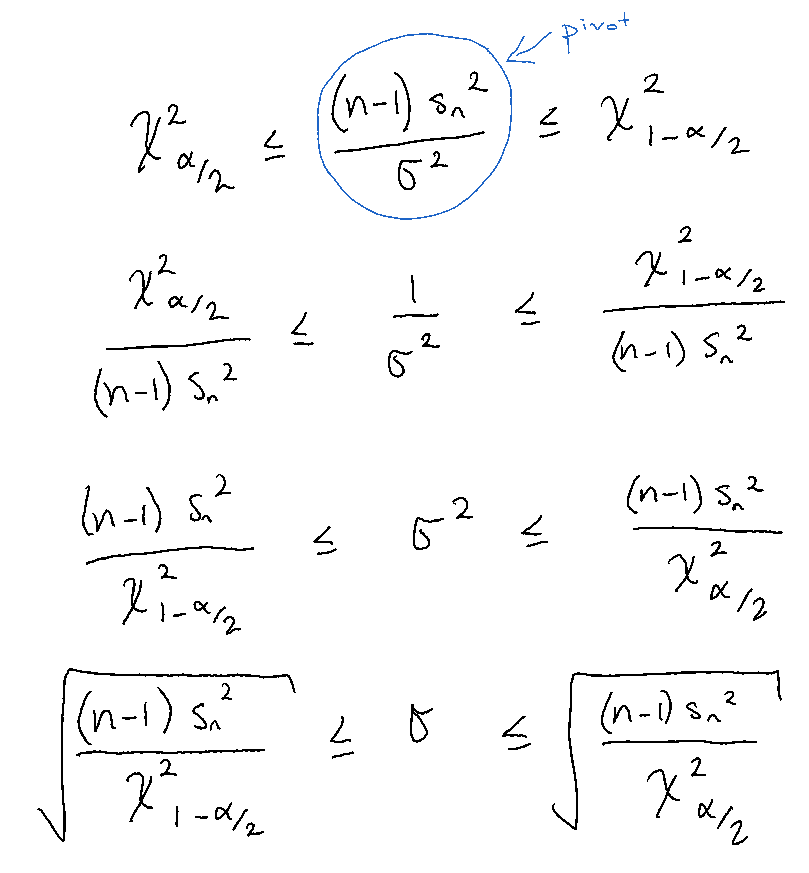 pivot
χ²_{α/2} ≤ (n-1) s_n² / σ² ≤ χ²_{1-α/2}
χ²_{α/2} / (n-1) s_n² ≤ 1 / σ² ≤ χ²_{1-α/2} / (n-1) s_n²
(n-1) s_n² / χ²_{1-α/2} ≤ σ² ≤ (n-1) s_n² / χ²_{α/2}
√((n-1) s_n² / χ²_{1-α/2}) ≤ σ ≤ √((n-1) s_n² / χ²_{α/2})